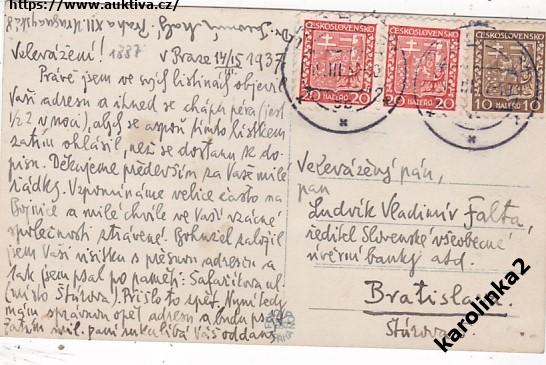 https://www.auktiva.cz/
Dr. Jaromír Malý, Praha XII.
Velevážení! v Praze 14/IX 1937
1337
Právě jsem ve svých listinách objevil
Vaši adresu a ihned se chápu péra (jest
1/2 2 v noci), abych se aspoň tímto lístkem
zatím ohlásil, než se dostanu k do-
pisu. Děkujeme především za Vaše milé
řádky. Vzpomínáme velice často na
Bojnice a milé chvíle ve Vaší vzácné
společnosti strávené. Bohužel založil
jsem Vaši visitku s přesnou adresou a
tak jsem psal po paměti: Šafaříkova ul.
(místo Štúrova). Přišlo to zpět. Nyní tedy
mám správnou opět adresu a budu psát
Zatím mil. paní ruku líbá Váš oddaný
ČESKOSLOVENSKO
20 HALÉŘŮ 20
ČESKOSLOVENSKO
20 HALÉŘŮ 20
ČESKOSLOVENSKO
10 HALÉŘŮ 10
Velevážený pán,
pan
Ludvík Vladimír Falta,
ředitel Slovenské všeobecné
úvěrní banky atd.
Bratislava
Štúrova
karolinka2